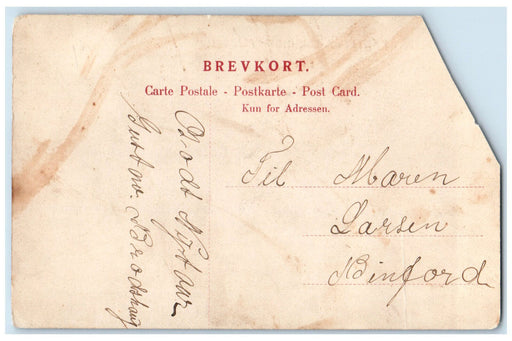 BREVKORT.
Carte Postale - Postkarte - Post Card.
Kun for Adressen.
Til Maren
Larsen
Binford
Godt Nytaar
Gust